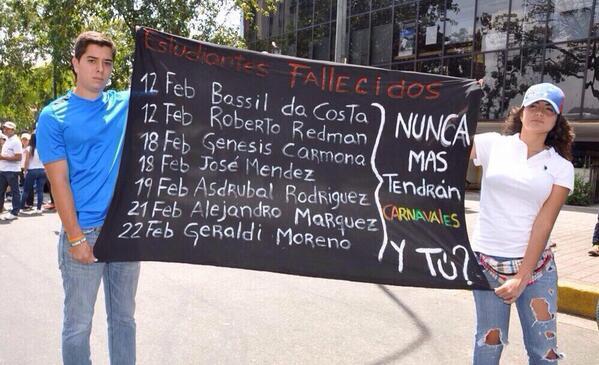 Estudiantes Fallecidos
12 Feb Bassil da Costa
12 Feb Roberto Redman
18 Feb Genesis Carmona
18 Feb José Mendez
19 Feb Asdrubal Rodriguez
21 Feb Alejandro Marquez
22 Feb Geraldi Moreno
NUNCA
MAS
Tendrán
CARNAVALES
Y TÚ?